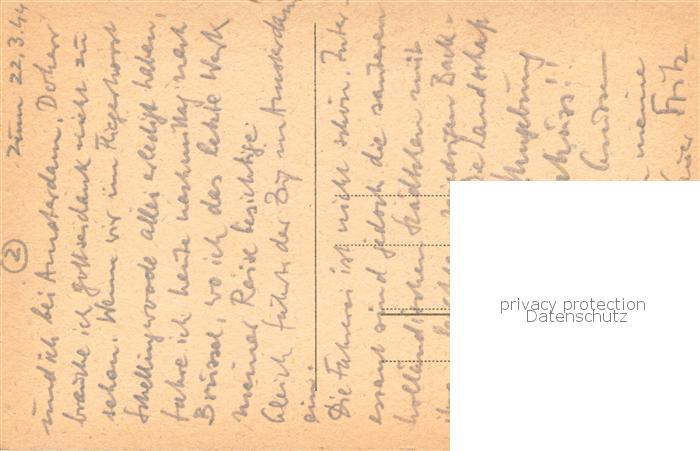 ② Zum 22.3.44
und ich bei Amsterdam. Daher
brauche ich gottseidank nicht zu
sehen. Wenn wir im Fliegerhorst
Schellingwoude alles erledigt haben,
fahre ich heute nachmittag nach
Brüssel, wo ich das letzte Werk
meiner Reise besichtige.
Gleich fährt der Zug in Amsterdam
ein.
Die Fahrerei ist nicht schön. Inter-
essant sind jedoch die sauberen
holländischen Städtchen mit
ihren Back-
die Landschaft
Umgebung
meine
Fritz
privacy protection
Datenschutz